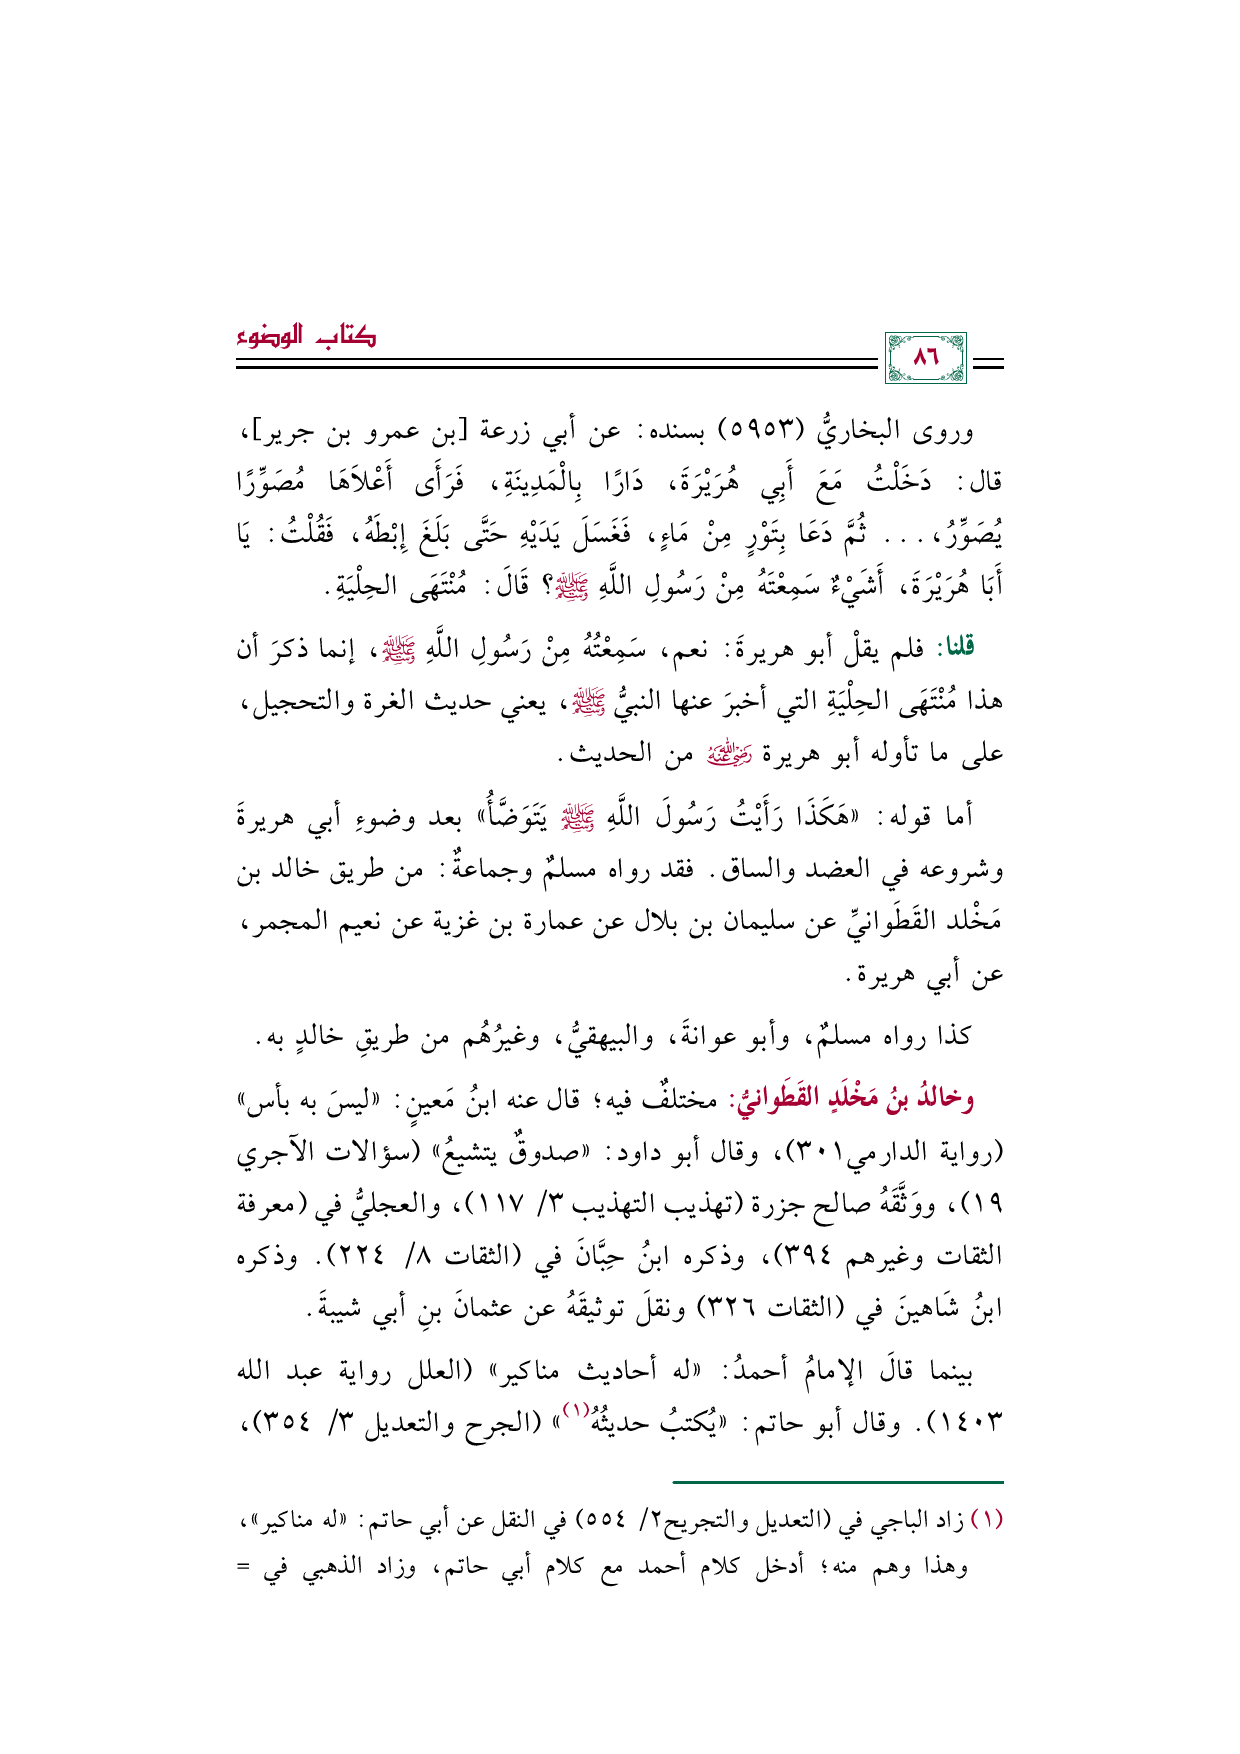 كتاب الوضوء
٨٦
وروى البخاريُّ (٥٩٥٣) بسنده: عن أبي زرعة [بن عمرو بن جرير]،
قال: دَخَلْتُ مَعَ أَبِي هُرَيْرَةَ، دَارًا بِالْمَدِينَةِ، فَرَأَى أَعْلاَهَا مُصَوِّرًا
يُصَوِّرُ،... ثُمَّ دَعَا بِتَوْرٍ مِنْ مَاءٍ، فَغَسَلَ يَدَيْهِ حَتَّى بَلَغَ إِبْطَهُ، فَقُلْتُ: يَا
أَبَا هُرَيْرَةَ، أَشَيْءٌ سَمِعْتَهُ مِنْ رَسُولِ اللَّهِ ﷺ؟ قَالَ: مُنْتَهَى الحِلْيَةِ.
قلنا: فلم يقلْ أبو هريرةَ: نعم، سَمِعْتُهُ مِنْ رَسُولِ اللَّهِ ﷺ، إنما ذكرَ أن
هذا مُنْتَهَى الحِلْيَةِ التي أخبرَ عنها النبيُّ ﷺ، يعني حديث الغرة والتحجيل،
على ما تأوله أبو هريرة رضي الله عنه من الحديث.
أما قوله: «هَكَذَا رَأَيْتُ رَسُولَ اللَّهِ ﷺ يَتَوَضَّأُ» بعد وضوءِ أبي هريرةَ
وشروعه في العضد والساق. فقد رواه مسلمٌ وجماعةٌ: من طريق خالد بن
مَخْلد القَطَوانيِّ عن سليمان بن بلال عن عمارة بن غزية عن نعيم المجمر،
عن أبي هريرة.
كذا رواه مسلمٌ، وأبو عوانةَ، والبيهقيُّ، وغيرُهُم من طريقِ خالدٍ به.
وخالدُ بنُ مَخْلَدٍ القَطَوانيُّ: مختلفٌ فيه؛ قال عنه ابنُ مَعينٍ: «ليسَ به بأس»
(رواية الدارمي٣٠١)، وقال أبو داود: «صدوقٌ يتشيعُ» (سؤالات الآجري
١٩)، ووَثَّقَهُ صالح جزرة (تهذيب التهذيب ٣/ ١١٧)، والعجليُّ في (معرفة
الثقات وغيرهم ٣٩٤)، وذكره ابنُ حِبَّانَ في (الثقات ٨/ ٢٢٤). وذكره
ابنُ شَاهينَ في (الثقات ٣٢٦) ونقلَ توثيقَهُ عن عثمانَ بنِ أبي شيبةَ.
بينما قالَ الإمامُ أحمدُ: «له أحاديث مناكير» (العلل رواية عبد الله
١٤٠٣). وقال أبو حاتم: «يُكتبُ حديثُهُ(١)» (الجرح والتعديل ٣/ ٣٥٤)،
(١) زاد الباجي في (التعديل والتجريح٢/ ٥٥٤) في النقل عن أبي حاتم: «له مناكير»،
وهذا وهم منه؛ أدخل كلام أحمد مع كلام أبي حاتم، وزاد الذهبي في =